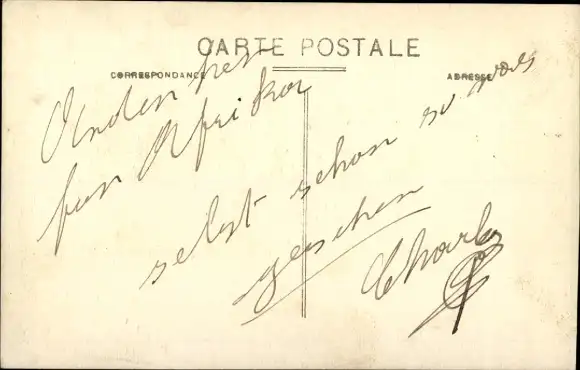 CARTE POSTALE
CORRESPONDANCE
ADRESSE
Andenken
fun Afrika
selbst schon so was
gesehen
Charles